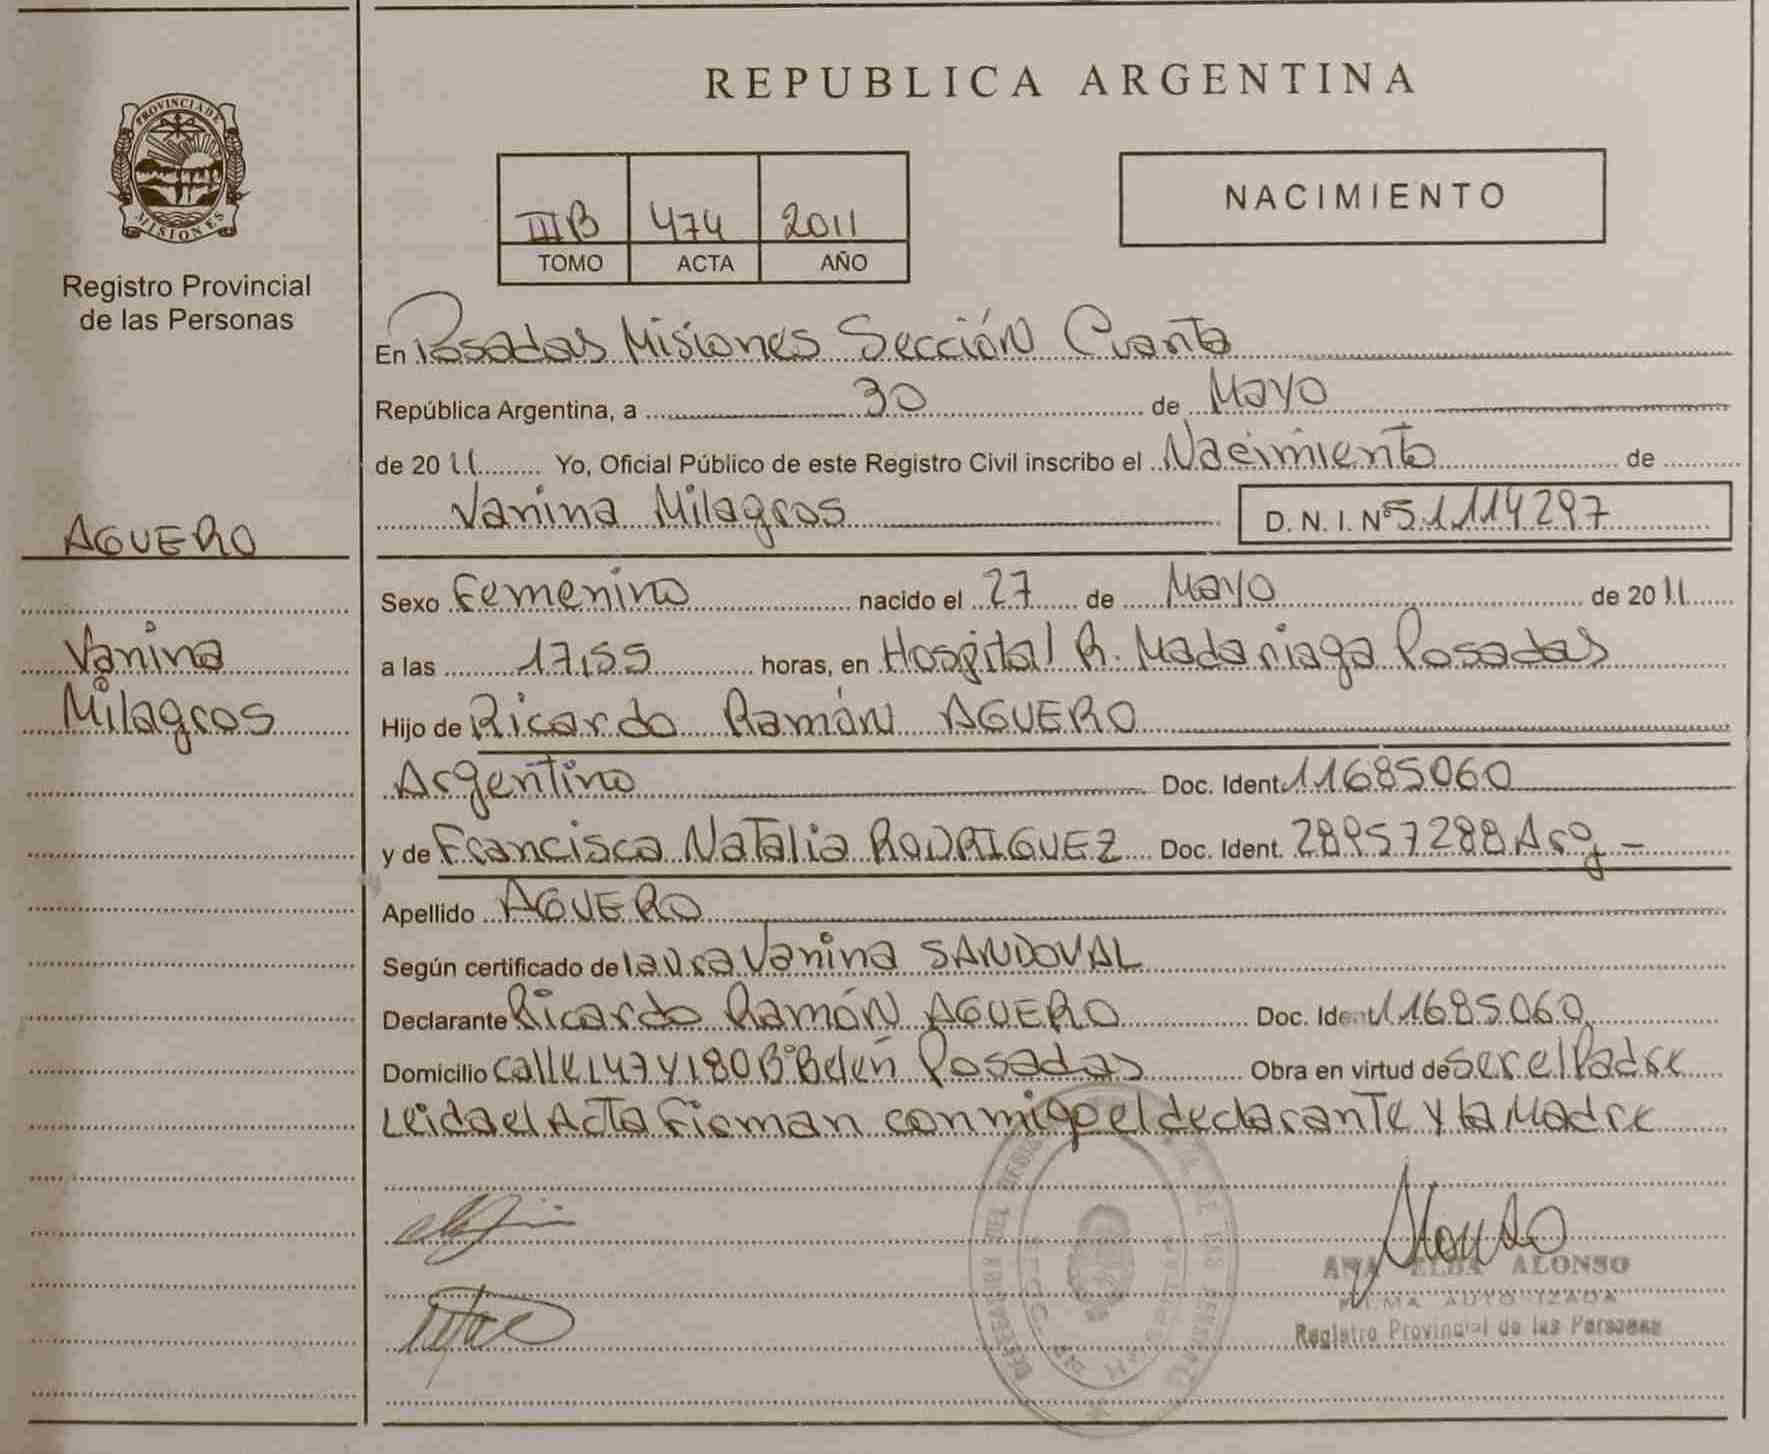 PROVINCIA DE
MISIONES
Registro Provincial
de las Personas
AGUERO
Vanina
Milagros
REPUBLICA ARGENTINA
IIIB 474 2011
TOMO ACTA AÑO
NACIMIENTO
En Posadas Misiones Sección Cuarta
República Argentina, a 30 de Mayo
de 2011 Yo, Oficial Público de este Registro Civil inscribo el Nacimiento de
Vanina Milagros D. N. I. Nº 51114297
Sexo Femenino nacido el 27 de Mayo de 2011
a las 17,55 horas, en Hospital R. Madariaga Posadas
Hijo de Ricardo Ramón AGUERO
Argentino Doc. Ident. 11685060
y de Francisca Natalia RODRIGUEZ Doc. Ident. 28957288 Arg
Apellido AGUERO
Según certificado de laura Vanina SANDOVAL
Declarante Ricardo Ramón AGUERO Doc. Ident 11685060
Domicilio calle 147 y 180 Bº Belén Posadas Obra en virtud de ser el Padre
Leida el Acta Firman conmigo el declarante y la Madre
Alonso
ANA ELBA ALONSO
FIRMA AUTORIZADA
Registro Provincial de las Personas